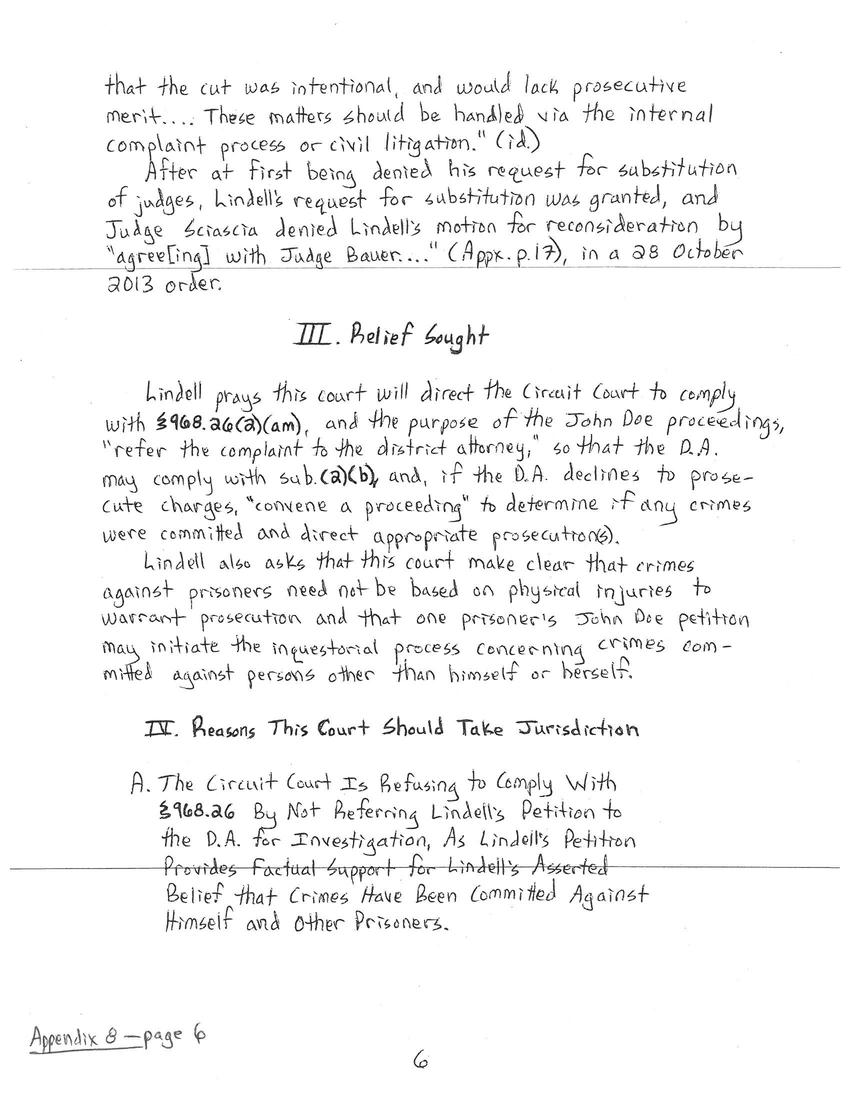 that the cut was intentional, and would lack prosecutive
merit.... These matters should be handled via the internal
complaint process or civil litigation." (id.)
After at first being denied his request for substitution
of judges, Lindell's request for substitution was granted, and
Judge Sciascia denied Lindell's motion for reconsideration by
"agree[ing] with Judge Bauer...." (Appx. p.17), in a 28 October
2013 order.
III. Relief Sought
Lindell prays this court will direct the Circuit Court to comply
with §968.26(2)(am), and the purpose of the John Doe proceedings,
"refer the complaint to the district attorney," so that the D.A.
may comply with sub.(2)(b), and, if the D.A. declines to prose-
cute charges, "convene a proceeding" to determine if any crimes
were committed and direct appropriate prosecution(s).
Lindell also asks that this court make clear that crimes
against prisoners need not be based on physical injuries to
warrant prosecution and that one prisoner's John Doe petition
may initiate the inquestorial process concerning crimes com-
mitted against persons other than himself or herself.
IV. Reasons This Court Should Take Jurisdiction
A. The Circuit Court Is Refusing to Comply With
§968.26 By Not Referring Lindell's Petition to
the D.A. for Investigation, As Lindell's Petition
Provides Factual Support for Lindell's Asserted
Belief that Crimes Have Been Committed Against
Himself and Other Prisoners.
Appendix 8 - page 6
6